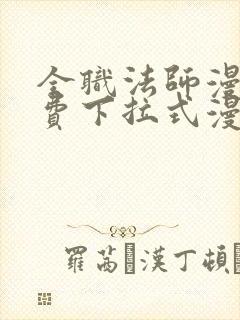 全職法師漫
費下拉式漫
羅茜 漢丁頓